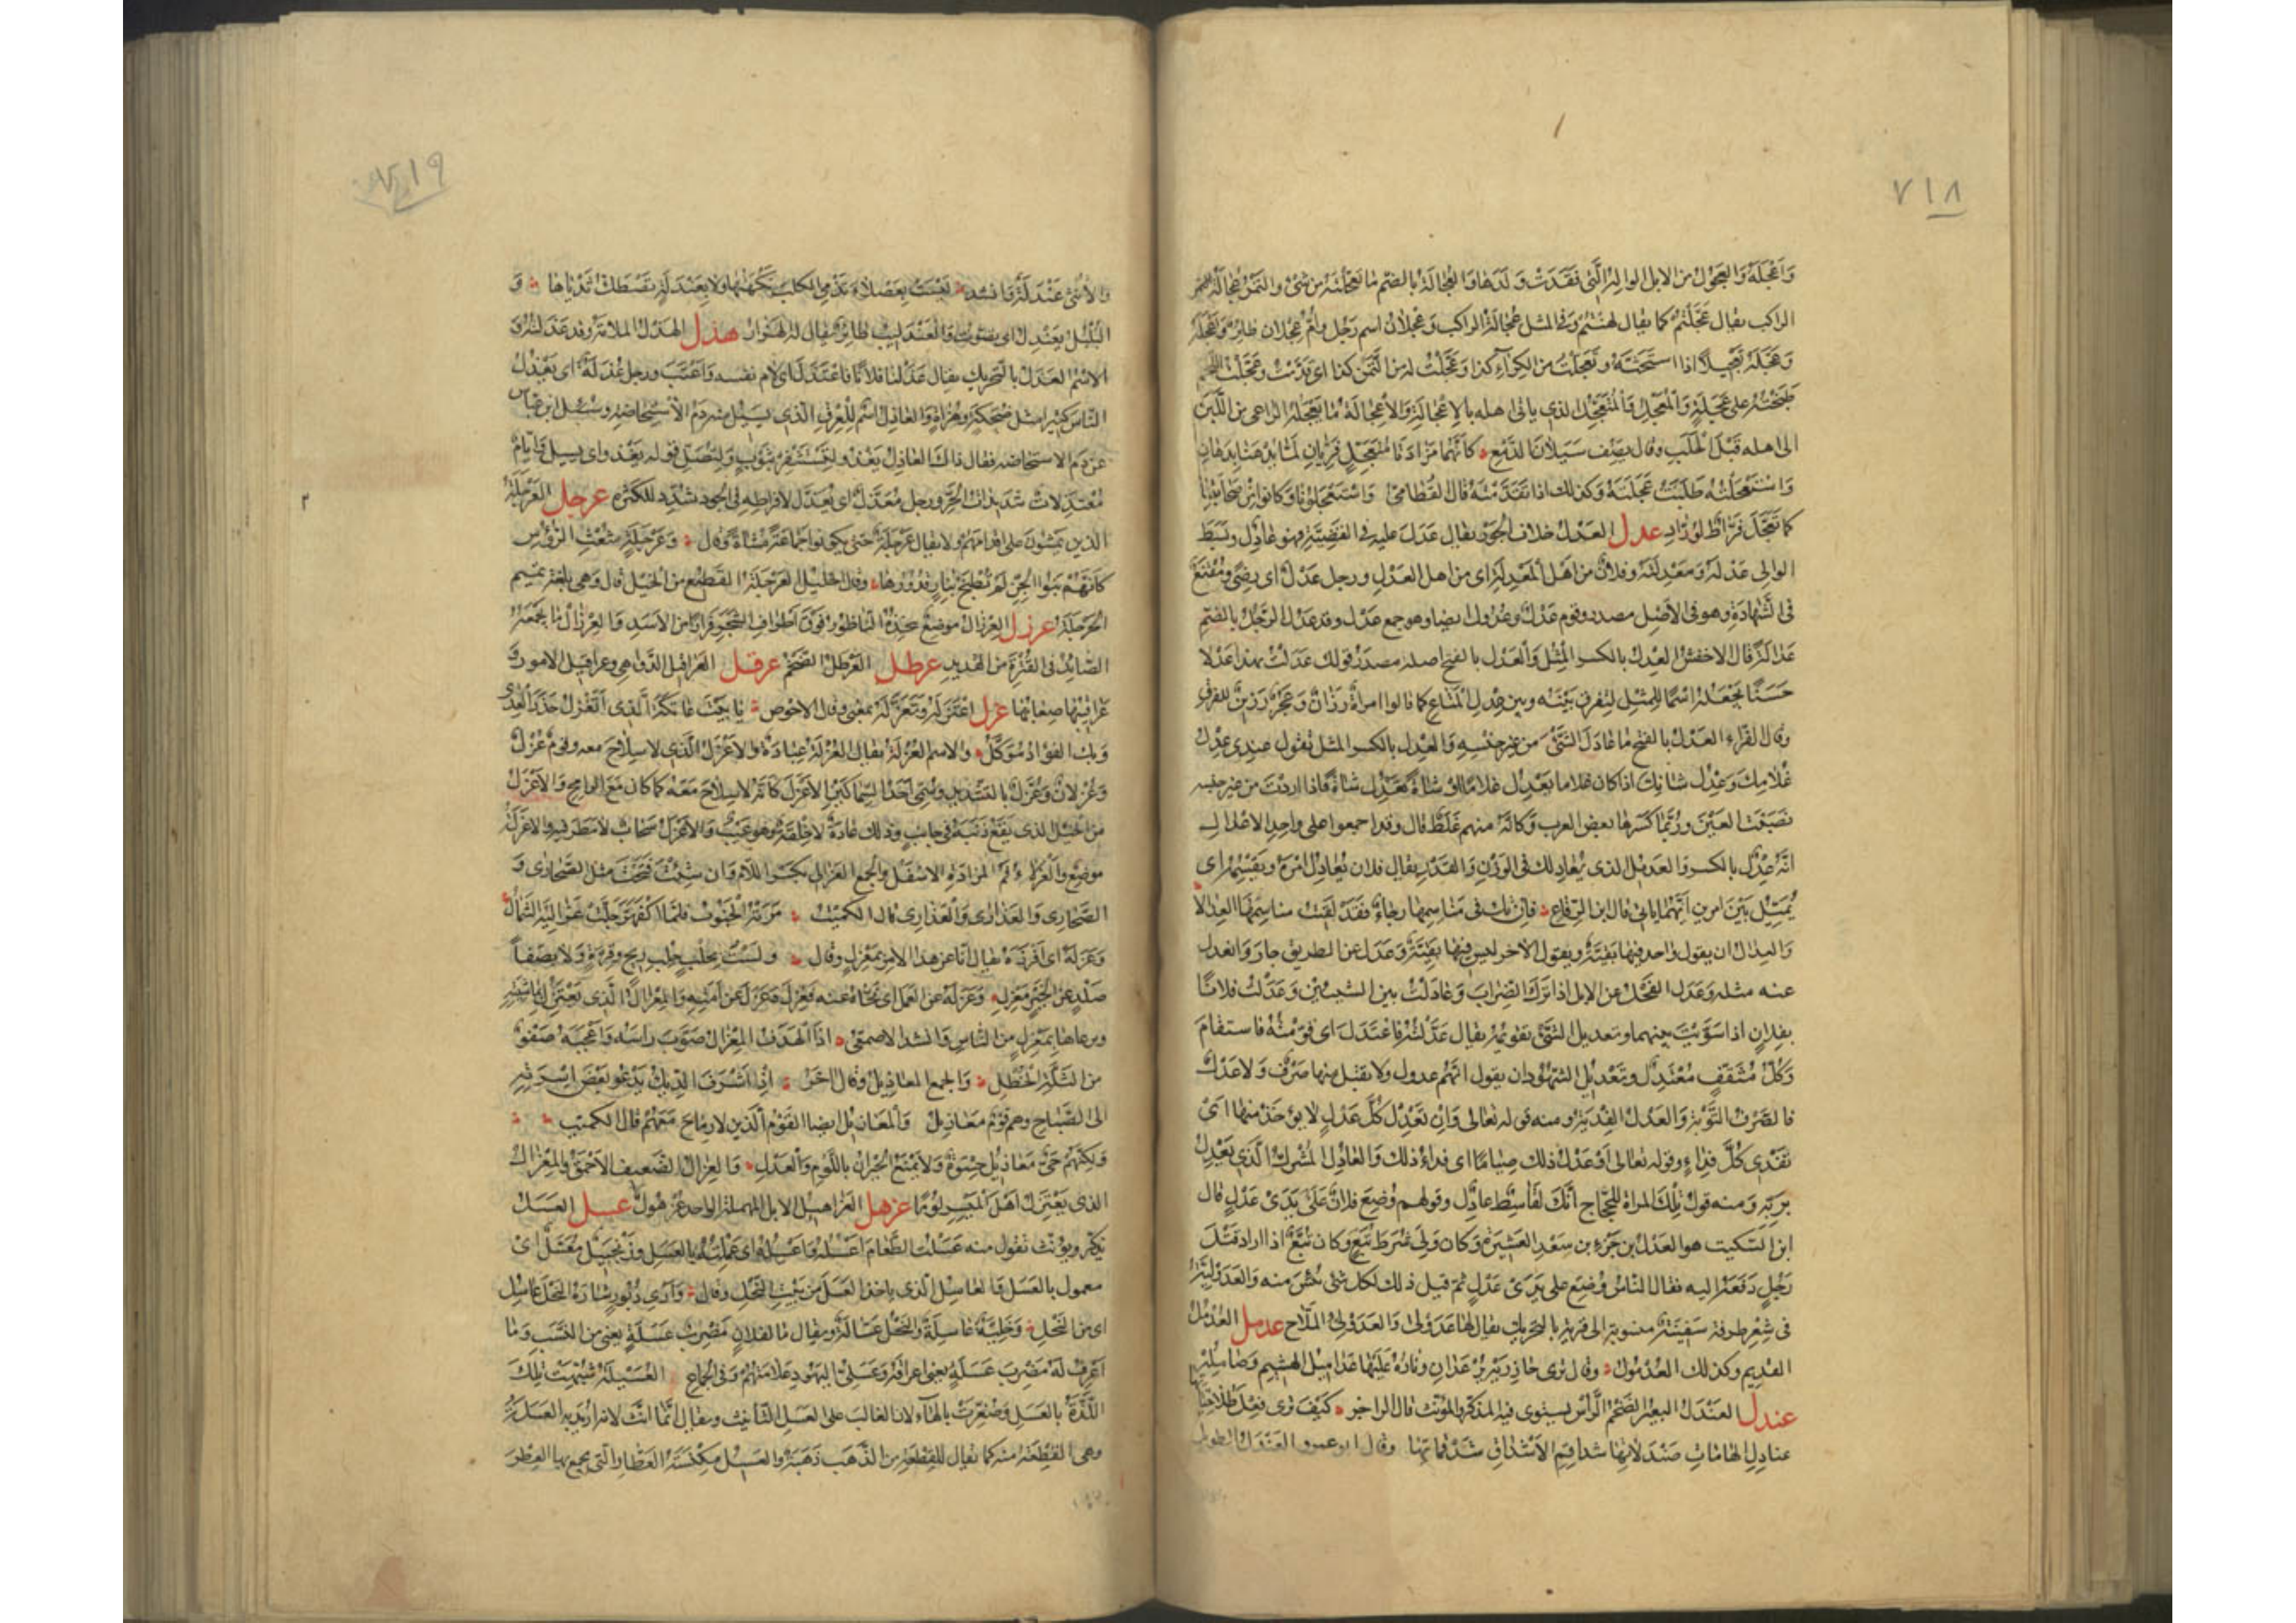 ٧١٨
وَاَعْجَلَهُ وَالعَجُولُ من الابل الوالِهُ الَّتى فقَدَتْ وَلَدَها وَالعُجَالَةُ بالضّم ما تعجّلْتَهُ من شىْءٍ والتَمْرُ عُجَالَةُ
الراكب يقال عَجَّلْتُمْ كما يقال لهنتم وَفى المثل عُجَالَةُ الراكب وَعَجْلانُ اسم رجل وامّ عَجْلان طائر
وَعَجَّلَهُ تَعْجِيلًا اذا استَحَثّهُ وتَعَجَّلْتُ من الكِرَآءِ كذا وَعَجَّلْتُ له من الثَّمَن كذا اى قدّمْتُ وعَجَّلْت اللحم
طَبَخْتُهُ على عَجَلَةٍ وَالمُعَجِّل وَالمُتَعَجِّل الذى ياتى اهله بالاِعْجَالَةِ وَالاِعْجَالَةُ ما يعَجِّلهُ الراعى من اللَّبَن
الى اهله قَبْلَ الحَلَبِ وقال يصِف سَيَلَانَ الدَّمْعِ كَاَنَّهُما مَزَادَتَا مُتَعَجِّلٍ فَرِيَّانِ لَمَّا
وَاسْتَعْجَلْتُه طَلَبْتُ عَجَلَتَهُ وكذلك اذا تَقَدَّمْتَهُ قال القُطامىّ وَاسْتَعْجَلُونَا وَكانوا من صَحَابَتِنَا
كما تَعَجَّلَ فُرَّاطٌ لِوُرَّادِ عدل العَدْلُ خلاف الجَوْر يقال عَدَلَ عليه فى القَضِيَّةِ فهو عَادِلٌ وبَسَط
الوالى عَدْلَهُ وَمَعْدِلَتَهُ وفلانٌ من اَهْل المَعْدِلَةِ اى من اهل العَدْلِ ورجل عَدْلٌ اى رِضًى ومَقْنَعٌ
فى الشَّهادَةِ وهو فى الاَصْل مصدر وقوم عَدْلٌ وعُدُولٌ ايضا وهو جمع عَدْل وقد عَدُلَ الرَّجُلُ بالضَّمّ
عَدَالَةً قال الاخفش العِدْل بالكسر المِثْل وَالعَدْل بالفتح اصله مصدَرُ قولك عَدَلْتُ بهذا عَدْلًا
حَسَنًا تجْعَلهُ اسْمًا لِلمِثْلِ لِتفرق بَيْنَه وبين عِدْلِ المَتَاعِ كما قالوا امراةٌ رَزَانٌ وَعَجُزٌ رَزِينٌ للفرق
وقال الفَرّاء العَدْلُ بالفتح ما عَادَلَ الشَّىْءَ من غير جِنْسِهِ وَالعِدْلُ بالكسر المثل تقول عِنْدِى عِدْلُ
غُلَامِكَ وَعِدْلُ شاتِكَ اذا كان غلاما يعْدِل غلامًا او شاةً تَعْدِل شاةً فاذا اردْتَ من غير جنسه
نصَبْتَ العَيْنَ ورُبَّما كَسَرها بعض العرب وكاَنّهُ منهم غَلَطٌ قال وقد اجمعوا على واحِدِ الاعدالِ
انّهُ عِدْلٌ بالكسر والعديل الذى يُعَادِلك فى الوَزْن والقَدْر يقال فلان يُعَادِلُ امْرَهُ ويُقَسِّمُهُ اى
يُمَيِّلُ بَيْنَ امرينِ اَيَّهُما ياتى قال ابن الرِّقاع فاِن يَكُ فى مَنَاسِمِها رجَاءٌ فَقَدْ لَقِيَتْ مناسِمُهَا العِدَالا
وَالعِدالُ ان يقول واحد فيها بَقِيَّةٌ ويقول الآخر ليس فيها بَقِيَّةٌ وَعَدَلَ عن الطريق جارَ وَانعدل
عنه مثله وَعَدَلَ الفَحْلُ عن الابل اذا تَرَكَ الضِّرَابَ وَعَادَلْتُ بين الشيئين وَعَدَلْتُ فلانًا
بفلانٍ اذا سَوَّيْتَ بينهما وتعديل الشَّىْءِ تقويمُهُ يقال عَدَّلْتُهُ فاعْتَدَلَ اى قَوَّمْتُهُ فاستقام
وَكُلّ مُثَقَّفٍ مُعْتَدِلٌ وتَعْدِيل الشُّهُودان يقول انّهُم عدول ولا يقبل منها صَرْفٌ وَلا عَدْلٌ
فالصَّرْفُ التَّوْبَةُ والعَدْلُ الفِدْيَةُ ومنه قوله تعالى وَاِنْ تَعْدِلْ كُلَّ عَدْلٍ لا يؤخَذْ منها اى
تَفْدِى كلَّ فِدَاءٍ وقوله تعالى اَوْ عَدْلُ ذلك صِيَامًا اى فداءُ ذلك وَالعَادِلُ المُشْرِكُ الَّذى يَعْدِلُ
بربّهِ وَمنه قولُ تِلْكَ المراة لِلحَجَّاجِ اِنَّكَ لَقَاسِطٌ عادِلٌ وقولهم وُضِعَ فلانٌ عَلَى يَدَىْ عَدْلٍ قال
ابن السّكيت هو العَدْلُ بن جَزْءِ بن سَعْدِ العَشِيرَةِ وَكان وَلِىَ شُرَطَ تُبَّعٍ وَكان تُبَّعٌ اذا اراد قَتْلَ
رَجُلٍ دَفَعَهُ اليه فقال النّاسُ وُضِعَ على يَدَىْ عَدْلٍ ثمّ قيل ذلك لكل شَىْءٍ يُئِسَ منه وَالعَدَوْلِيَّةُ
فى شِعْرِ طرفة سَفِينَةٌ منسوبة الى قرية بالبحرين يقال لها عَدَوْلَى وَالعَدَوْلِىُّ المَلّاح عدمل العُدْمُلُ
القديم وكذلك العُدْمُولُ وقال
عندل العَنْدَلُ البعير الضَّخْمُ الرَّاْسِ يستوى فيه المذكّر والمؤنّث قال الراجز كَيْفَ تَرَى فِعْلَ طُلَاحِيَّاتِهَا
عنادِلِ الهَامَاتِ صَنْدَلَاتِهَا شداقِمِ الاَشْدَاقِ شَدْقَمَاتِهَا وقال ابو عمرو العَنْدَلُ الطويل
٧١٩
والاُنْثَى عَنْدَلَةٌ وَانشد لَيْسَتْ بِعَصْلَاءَ تَذْمِى الكلبَ نَكْهَتُهَا ولا بِعَنْدَلَةٍ تَصْطَكُّ ثَدْيَاها وَ
البُلْبُلُ يعَنْدِلُ اى يصَوِّتُ وَالعَنْدَليب طائِرٌ يُقال له الهَزَارُ عذل العَذْلُ الملامَةُ وقد عَذَلْتُهُ وَ
الاِسْمُ العَذَلُ بالتّحريك يقال عَذَلنا فلانًا فاعْتَذَلَ اى لام نفسه وَاَعْتَبَ ورجل عُذَلَةٌ اى يعْذِلُ
النّاسَ كثيرا مثل ضُحَكَةٍ وهُزَأَةٍ والعاذِلُ اسْمٌ لِلْعِرْقِ الّذى يسيل منه دَمُ الاِسْتِحَاضَةِ وسُئِلَ ابن عبّاس
عن دَم الاستحاضه فقال ذاك العاذِلُ يَغْذُو لِتَسْتَثْفِرْ بثَوْبٍ وَلْتُصَلِّ قوله يَغْذو اى يسيل وَايّامٌ
مُعْتَذِلَاتٌ شديداتُ الحَرِّ ورجل مُعَذَّلٌ اى يُعَذَّل لافراطهِ فى الجُود شُدّد للكثرة عرجل العَرْجَلَةُ
الذين يَمْشُونَ على اقدامهم ولا يقال عَرْجَلَةٌ حتّى يكونوا جَمَاعَةً مُشَاةً وقال وَعَرْجَلَةٍ شُعْثِ الرّؤُوس
كاَنّهُمْ بنوا الجِنِّ لَمْ تُطْبَخْ بِنَارٍ قُدُورُهَا وقال الخليل العَرْجَلَةُ القَطِيعُ من الخَيْل قال وَهى بلُغَةِ تَمِيم
الحَرْجَلَةُ عرزل العِرْزَالُ موضِعٌ يتّخِذُهُ النّاطُورُ فَوْقَ اَطْرَافِ الشَّجَرِ فِرَارًا من الاَسَدِ وَالعِرْزَالُ ما يَجْمَعُهُ
الصّائِدُ فى القُتْرَةِ من القَدِيدِ عرطل العَرْطَلُ الضَّخْمُ عرقل العَرَاقيلُ الدَّوَاهِى وعراقيل الامورِ
صِعَابُهَا عزل اعْتَزَلَهُ وَتَعَزَّلَهُ بمعنى وقال الاَحْوَص يا بَيْتَ عَاتِكَةَ الَّذى اَتَعَزَّلُ حَذَرَ العِدَى
وَبكَ الفؤادُ مُوَكَّلُ والاسم العُزْلَةُ يقال العُزْلَةُ عِبَادَةٌ والاَعْزَلُ الّذى لا سِلَاحَ معه وقومٌ عُزْلٌ
وَعُزْلَانٌ وَعُزَّلٌ بالتشديد وسُمّى اَحَدُ السِّمَاكَيْنِ الاَعْزَلَ كانّهُ لا سِلَاحَ مَعَهُ كما كان مَعَ الرامِحِ وَالاَعْزَلُ
من الخَيْلِ الذى يَقَعُ ذَنَبُهُ فى جانِبٍ وذلك عَادَةٌ لا خِلْقَةٌ وهو عَيْبٌ والاَعْزَلُ سَحَابٌ لا مَطَرَ فيه والاَعْزَلَةُ
موضِعٌ وَالعَزْلَاءُ فَمُ المزَادَةِ الاسْفَلُ والجمع العَزَالِى بكَسْرِ اللّام وَان شِئْتَ فَتَحْتَ مثل الصَّحَارَى وَ
الصَّحَارِى وَالعَذَارَى وَالعَذَارِى قال الكُمَيْتُ مَرَتْهُ الجَنُوبُ فلمّا اكْفَهَرَّ حَلَّتْ عَزَالِيَهُ الشَّمْاَلُ
وَعَزَلَهُ اى اَفْرَزَهُ يقال اَنا عن هذا الامر بمَعْزِلٍ وقال وَلَسْتُ بِجُلْبٍ جُلْبِ رِيحٍ وَقِرَّةٍ وَلا بِصَفَا
صَلْدٍ عن الخَيْرِ مَعْزِلِ وَعَزَلَهُ عن العَمَل اى نَحَّاهُ عنه فعُزِلَ وَعَزَلَ عن اَمَتِهِ وَالمِعْزَالُ الّذى يَعْتَزِلُ بماشِيَتِهِ
ويرعاها بِمَعْزِلٍ من النّاسِ وَانشد الاصمعىّ اذا الهَدَفُ المِعْزَالُ صَوَّبَ رَاسَهُ وَاَعْجَبَهُ ضَفْوٌ
من الثَّلَّةِ الخُطْلِ وَالجمع المعازِيلُ وقال آخَرُ اِذا اَشْرَفَ الدِّيكُ يَدْعُو بَعْضَ اُسْرَتِهِ
الى الصَّبَاحِ وهم قَوْمٌ مَعَازِيلُ وَالمعَازِيلُ ايضا القَوْمُ الّذين لا رِمَاحَ مَعَهُمْ قال الكميت
وَلكِنَّهُمْ حَىٌّ مَعَازِيلُ حِشْوَةٌ وَلا يُمْنَعُ الجِيرَانُ باللَّوْمِ وَالعَذْلِ وَالعِزَالُ الضَّعيفُ الاَحْمَقُ وَالمِعْزَالُ
الذى يَعْتَزِلُ اَهْلَ المَيْسِرِ لُؤْمًا عزهل العَزَاهِيلُ الابل المُهمَلةُ الواحد عُزْهُولٌ عسل العَسَلُ
يذكّر ويؤنّث تقول منه عَسَلْتُ الطَّعَامَ اَعْسِلُهُ وَاَعْسُلُهُ اى عَمِلْتُهُ بالعَسَلِ وزَنْجَبِيلٌ مُعَسَّلٌ اى
معمول بالعَسَل وَالعَاسِلُ الّذى ياخذ العَسَلَ من بَيْتِ النَّحْلِ وقال وَاَرْىِ دُبُورٍ شَارَهُ النَّحْلَ عَاسِل
اى من النَّحْلِ وَخَلِيَّةٌ عَاسِلَةٌ والنَّحْلُ عَسَّالَةٌ ويقال ما لفلانٍ مَضْرِبُ عَسَلَةٍ يعنى من النَّسَبِ وَما
اَعْرِفُ لَهُ مَضْرِبَ عَسَلَةٍ يعنى اَعْرَاقَهُ وعَسَلِىُّ اليَهُودِ عَلامَتُهُم وَفى الجِمَاعِ العُسَيْلَةُ شُبِّهَتْ تِلْكَ
اللَّذَّةُ بالعَسَل وَصُغِّرَتْ بالهَآءِ لان الغالبَ على العَسَل التّانيث ويقال اِنَّمَا اُنِّثَ لانّهُ اُرِيدَ به العَسَلَةُ
وهى القِطْعَةُ منه كما يقال للقِطْعَةِ من الذَّهَبِ ذَهَبَةٌ والعَسِيلُ مِكْنَسَةُ العَطّارِ الّتى يجمع بها العِطْرَ